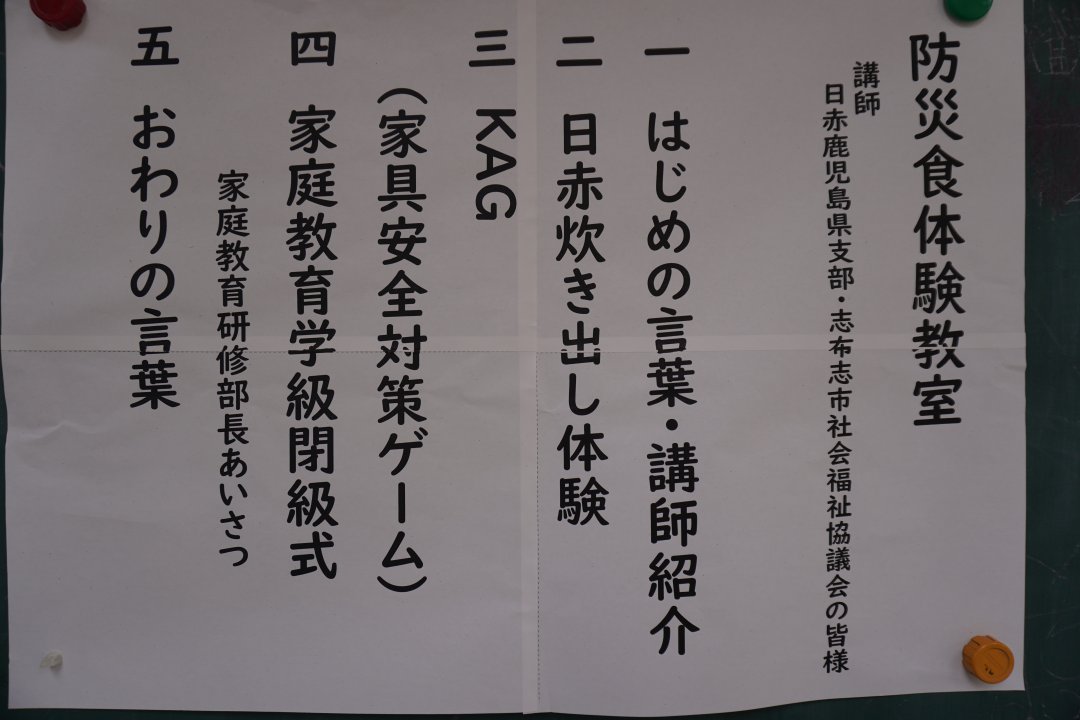 防災食体験教室
講師
日赤鹿児島県支部・志布志市社会福祉協議会の皆様
一 はじめの言葉・講師紹介
二 日赤炊き出し体験
三 KAG
(家具安全対策ゲーム)
四 家庭教育学級閉級式
家庭教育研修部長あいさつ
五 おわりの言葉